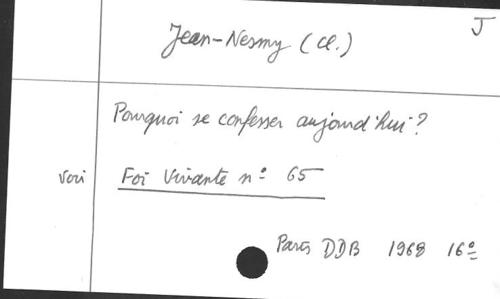 J
Jean-Nesmy (Cl.)
Pourquoi se confesser aujourd'hui?
voir Foi Vivante n° 65
Paris DDB 1968 16°